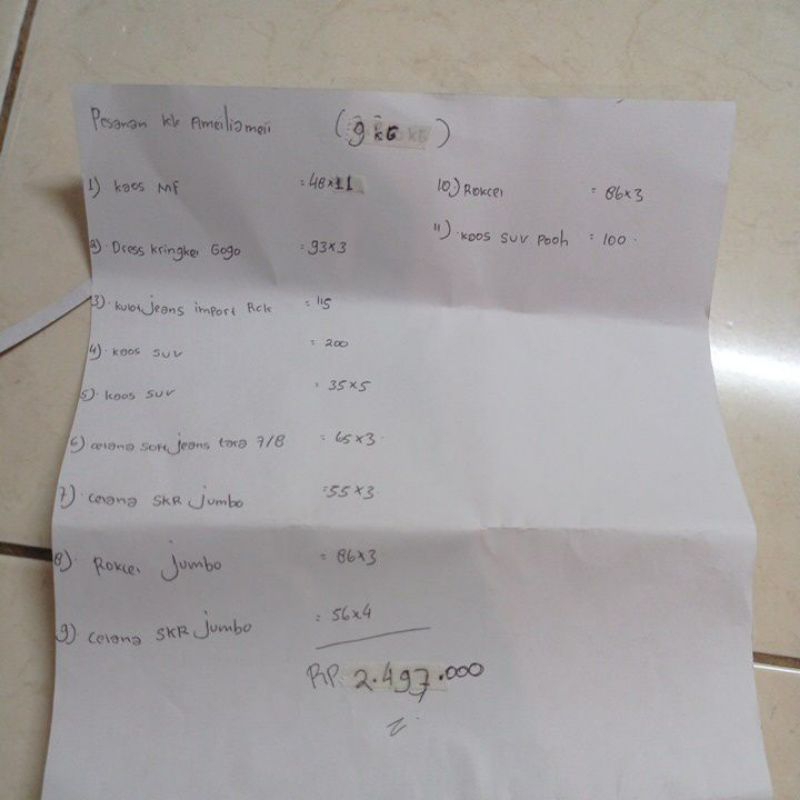 Pesanan kk Ameiliameii (9 KG)
1) kaos MF = 48x11
2) Dress kringkel Gogo = 93x3
3). kulot jeans import Rck = 115
4). kaos suv = 200
5). kaos suv = 35x5
6) celana soft jeans tara 7/8 = 65x3.
7). celana SKR Jumbo = 55x3
8). Rokcel Jumbo = 86x3
9) celana SKR Jumbo = 56x4
RP. 2.497.000
10.) Rokcel = 86x3
11). kaos suv Pooh = 100.